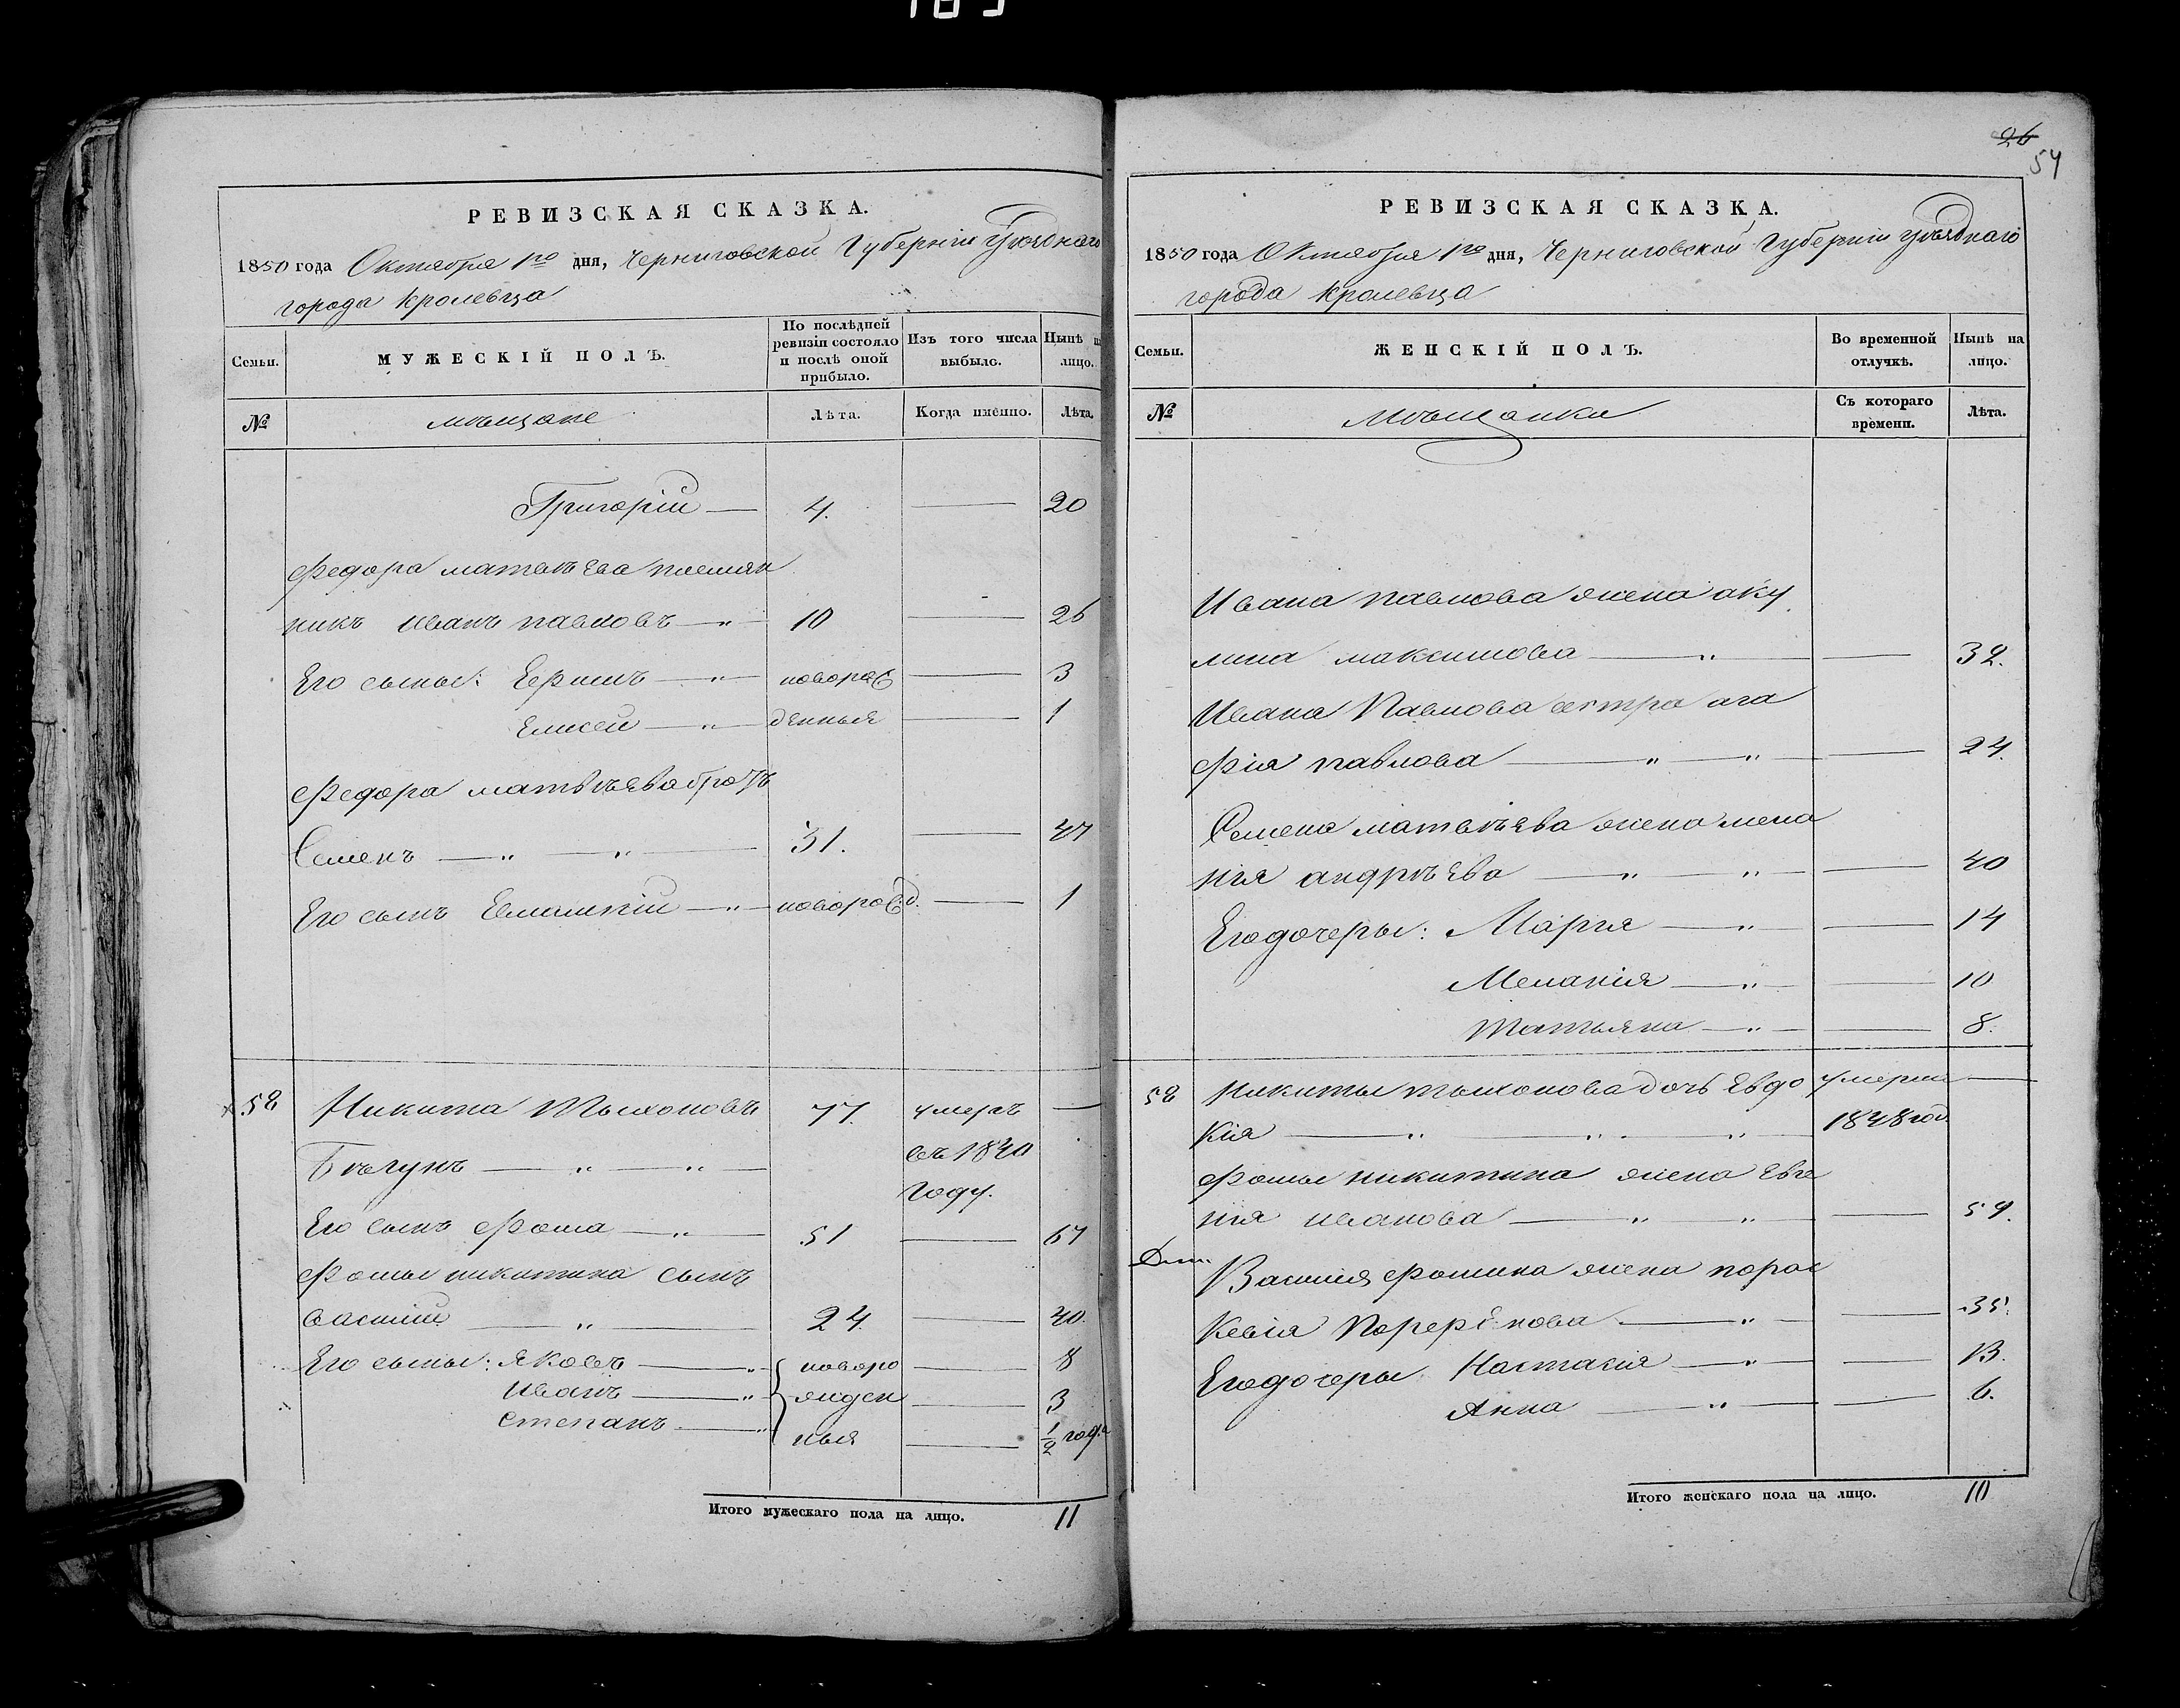 183
РЕВИЗСКАЯ СКАЗКА.
1850 года Октября 1го дня, Черниговской Губерніи уѣзднаго
города Кролевца
Семьи.
МУЖЕСКІЙ ПОЛЪ.
По послѣдней ревизіи состояло и послѣ оной прибыло.
Изъ того числа выбыло.
Нынѣ на лицо.
№
мѣщане
Лѣта.
Когда именно.
Лѣта.
Григорій — 4. — 20
Федора матвѣева племян
никъ иванъ павловъ — 10 — 26
Его сыны: — новорож — 3
Елисей — денныя — 1
Федора матвѣева братъ
Семенъ — 31. — 47
Его сынъ — 1
58 Никита Тыхоновъ 77. умеръ —
Бѣгунъ — въ 1840
году.
Его сынъ Фома — 51 — 67
Фомы никитина сынъ
василій — 24. — 40.
Его сыны: яковъ — новоро — 8
иванъ — жден — 3
степанъ — ныя — 1/2 года
Итого мужескаго пола на лицо. 11
26
54
РЕВИЗСКАЯ СКАЗКА.
1850 года Октября 1го дня, Черниговской Губерніи уѣзднаго
города Кролевца
Семьи.
ЖЕНСКІЙ ПОЛЪ.
Во временной отлучкѣ.
Нынѣ на лицо.
№
мѣщанки
Съ котораго времени.
Лѣта.
Ивана павлова жена аку
лина максимова — — 32.
Ивана Павлова сестра ага
фія павлова — — 24.
Семена матвѣева жена мела
нія андрѣева — — 40
Его дочеры: Марія — — 14
Меланія — — 10
Татьяна — — 8.
58 Никиты тыхонова дочь Евдо умерла —
кія — 1848 год.
Фомы никитина жена Евге
нія иванова — — 59.
Василія фомина жена парас
кевія — — 35.
Его дочеры Настасія — — 13.
Анна — — 6.
Итого женскаго пола на лицо. 10